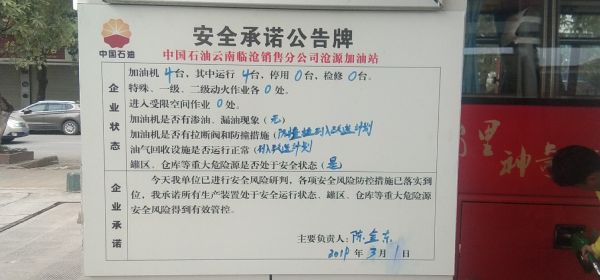 安全承诺公告牌
中国石油
中国石油云南临沧销售分公司沧源加油站
企业状态
加油机4台，其中运行4台，停用0台，检修0台。
特殊、一级、二级动火作业各0处。
进入受限空间作业0处。
加油机是否有渗油、漏油现象（无）
加油机是否有拉断阀和防撞措施（防撞柱列入改造计划
油气回收设施是否运行正常（列入改造计划
罐区、仓库等重大危险源是否处于安全状态（是）
企业承诺
今天我单位已进行安全风险研判，各项安全风险防控措施已落实到
位，我承诺所有生产装置处于安全运行状态、罐区、仓库等重大危险源
安全风险得到有效管控。
主要负责人：陈金东
2019年3月1日
里神奇